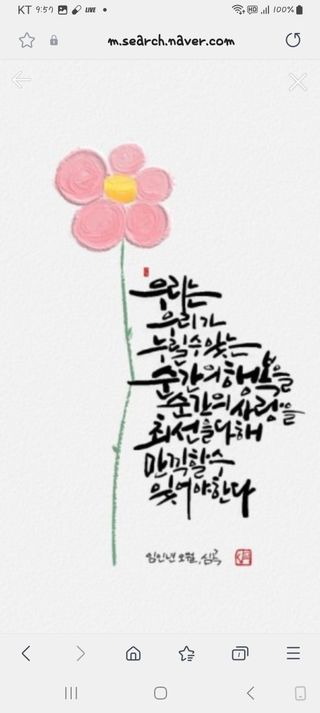 KT 9:57 LIVE HD 100%
m.search.naver.com
우리는
우리가
누릴 수 있는
순간의 행복을
순간의 사랑을
최선을 다해
만끽할 수
있어야 한다
임인년 오월, 심곡